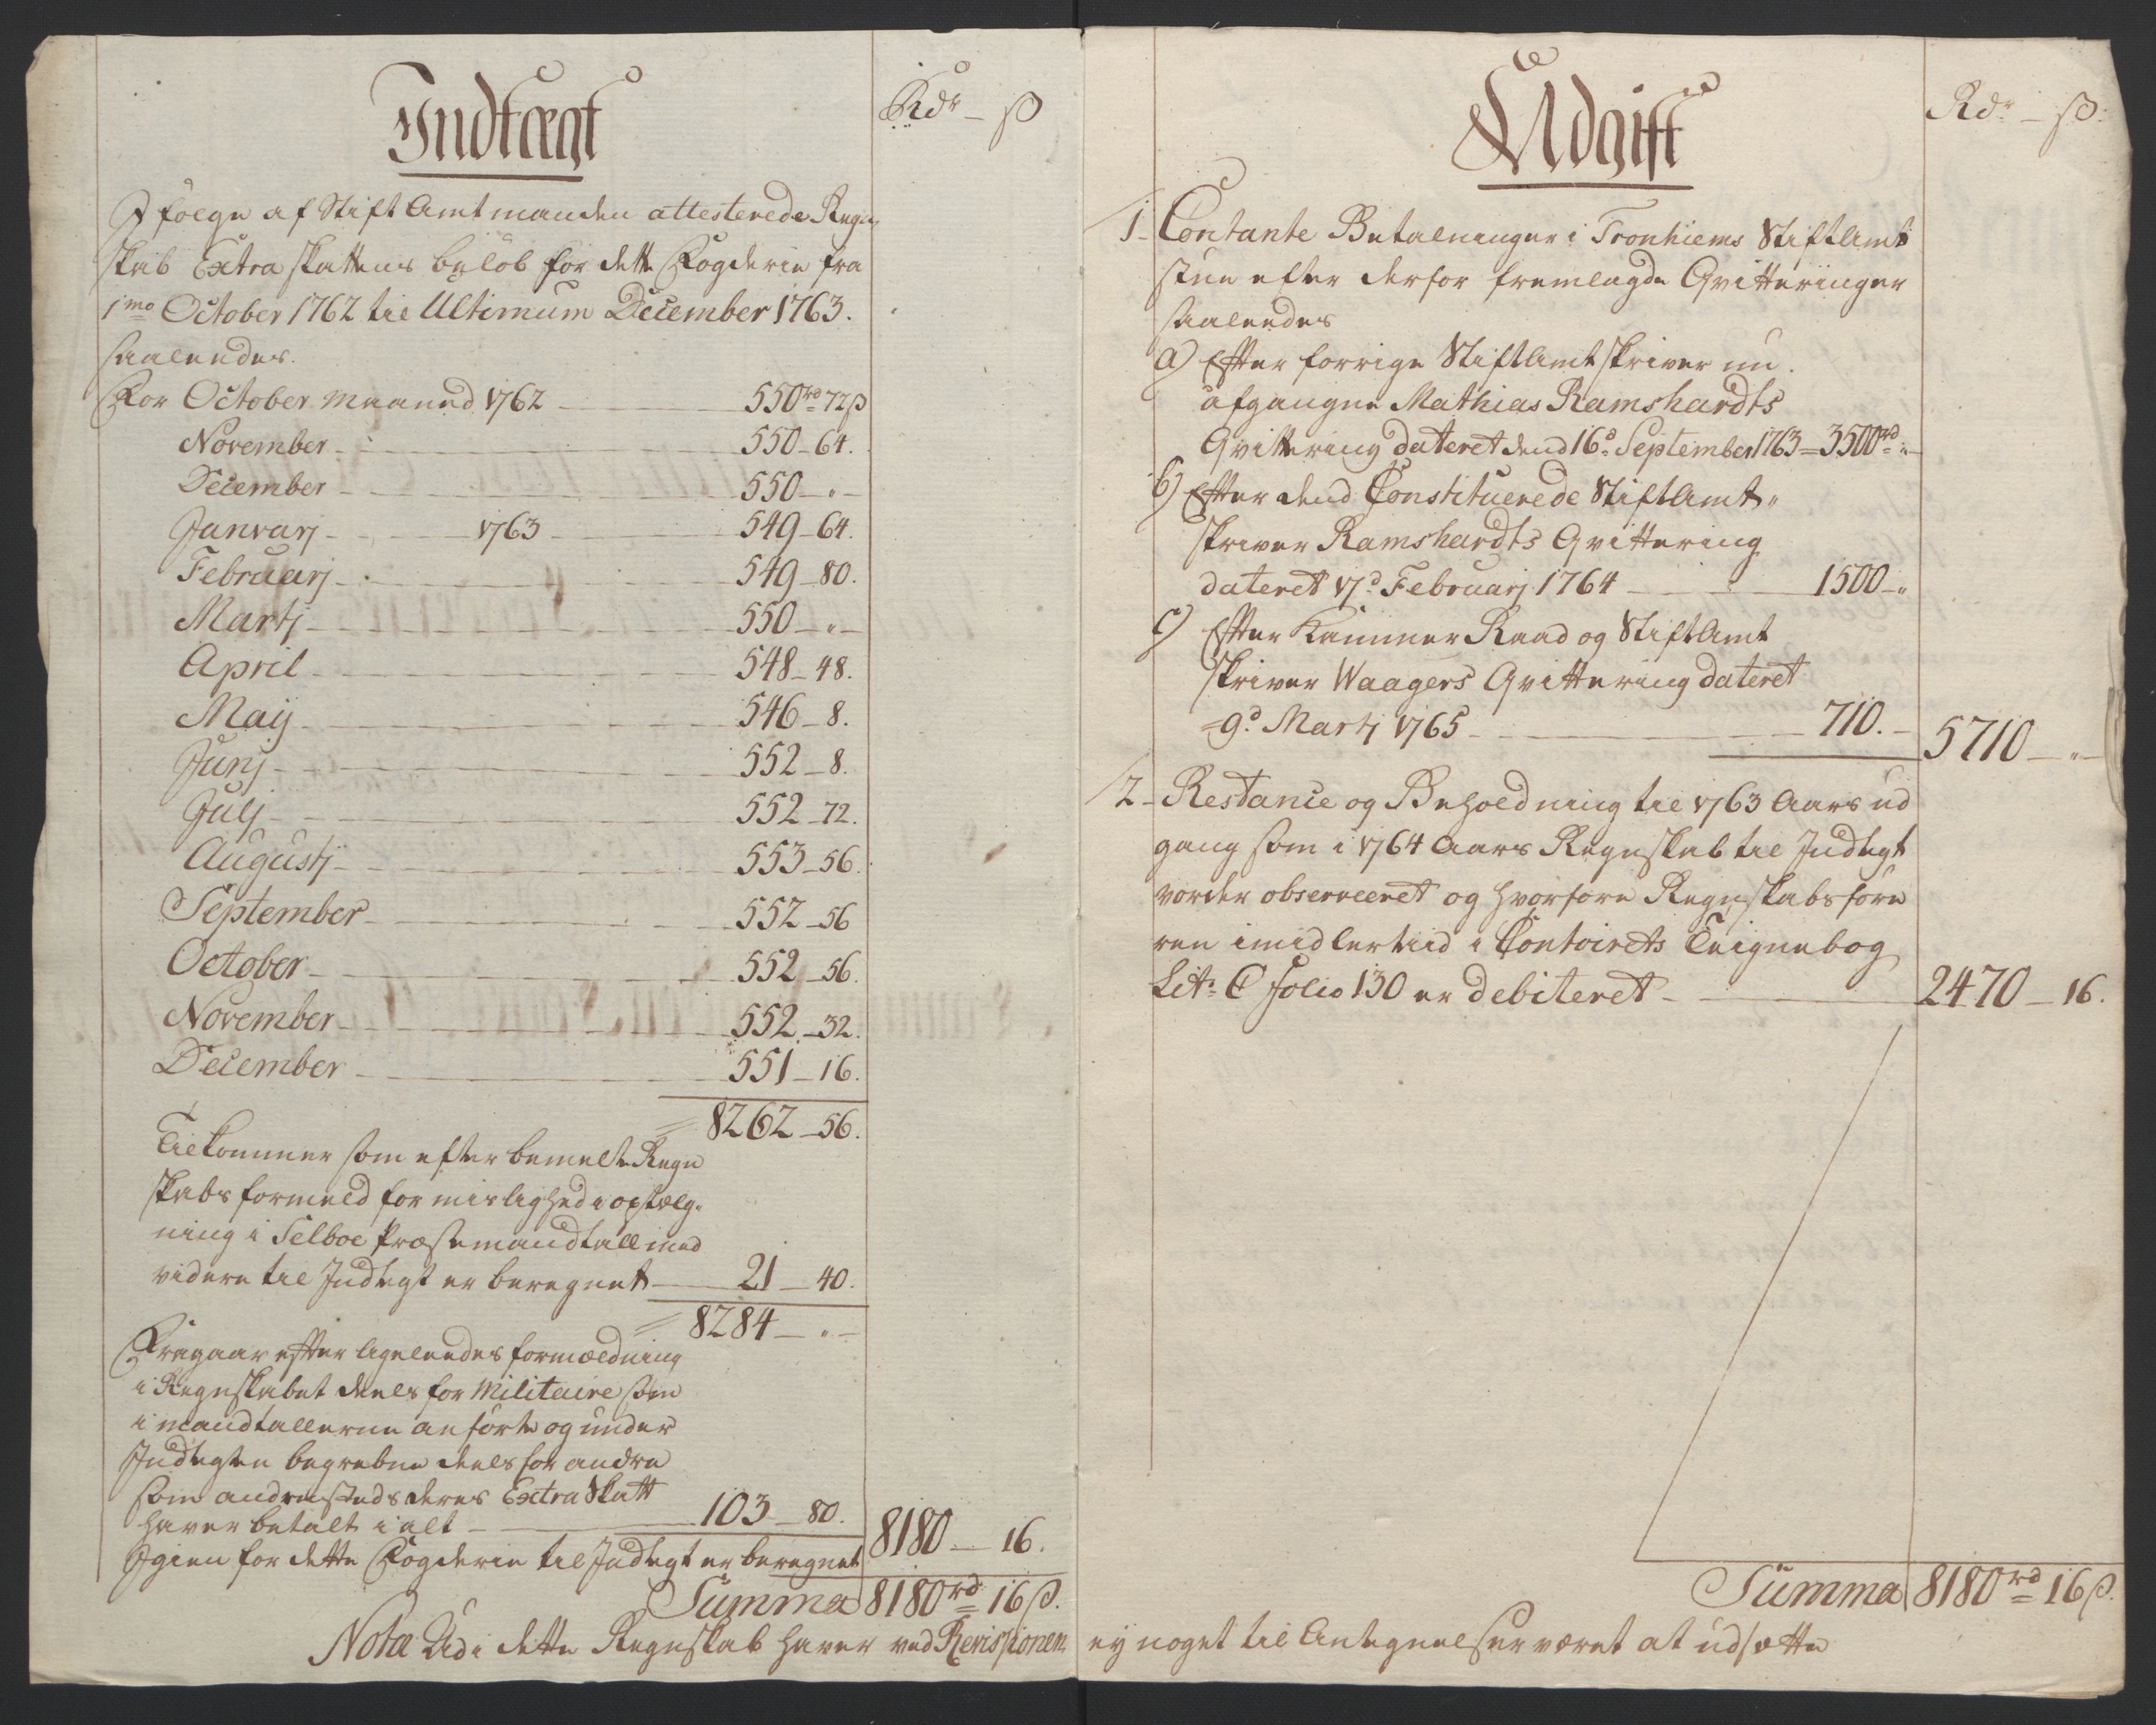 Indtægt
Rdr – ß
I følge af Stift Amtmanden attesterede Regn,
skab Extra skattens beløb for dette Fogderie fra
1mo October 1762 til Ultimum December 1763.
saaledes.
For October maaned 1762 – 550rd 72ß
November – 550 – 64.
December – 550 – " –
Janvarj – 1763 – 549 – 64.
Februarj – 549 – 80.
Martj – 550 – " –
April – 548 – 48.
Maij – 546 – 8.
Junj – 552 – 8.
Julj – 552 – 72.
Augustj – 553 – 56.
September – 552 – 56
October – 552 – 56.
November – 552 – 32.
December – 551 – 16.
= 8262 – 56.
Tilkommer som efter bemelte Regn
skabs formeld for mislighed i optælg-
ning i Selboe Præstemandtall med
videre til Indtegt er beregnet – 21 – 40.
= 8284 – " –
Fragaar efter ligeleedes formældning
i Regnskabet deels for Militaire som
i mandtallerne anførte og under
Indtegten begrebne deels for andre
som andensteds deres Extra Skatt
haver betalt i alt – 103 – 80.
Igien for dette Fogderie til Indtegt er beregnet 8180 – 16.
Summa 8180rd 16ß.
Nota Udi dette Regnskab haver ved Revissionen
Udgift
Rdr – ß.
1 – Contante Betalninger i Tronhiems Stiftamt
stue efter derfor fremlagde Qvitteringer
saaleedes
a) Efter forrige Stiftamtskriver nu
afgangne Mathias Ramshardts
Qvittering dateret dend 16d September 1763 = 3500rd "–
b) Efter dend Constituerede Stiftamt"
skriver Ramshardts Qvittering
dateret 17d Februarj 1764 – 1500 – "
c) Efter Kammer Raad og Stiftamt
skriver Waagers Qvittering dateret
9d Martj 1765 – 710. – 5710 – " –
2 – Restance og Beholdning til 1763 Aars ud
gang som i 1764 Aars Regnskab til Indtegt
vorder observeret og hvorfore Regnskabsføre
ren imidlertiid i Contoirets Teignebog
Litr C folio 130 er debiteret – 2470 – 16.
Summa 8180rd 16ß.
ey noget til Antegnelser været at udsætte